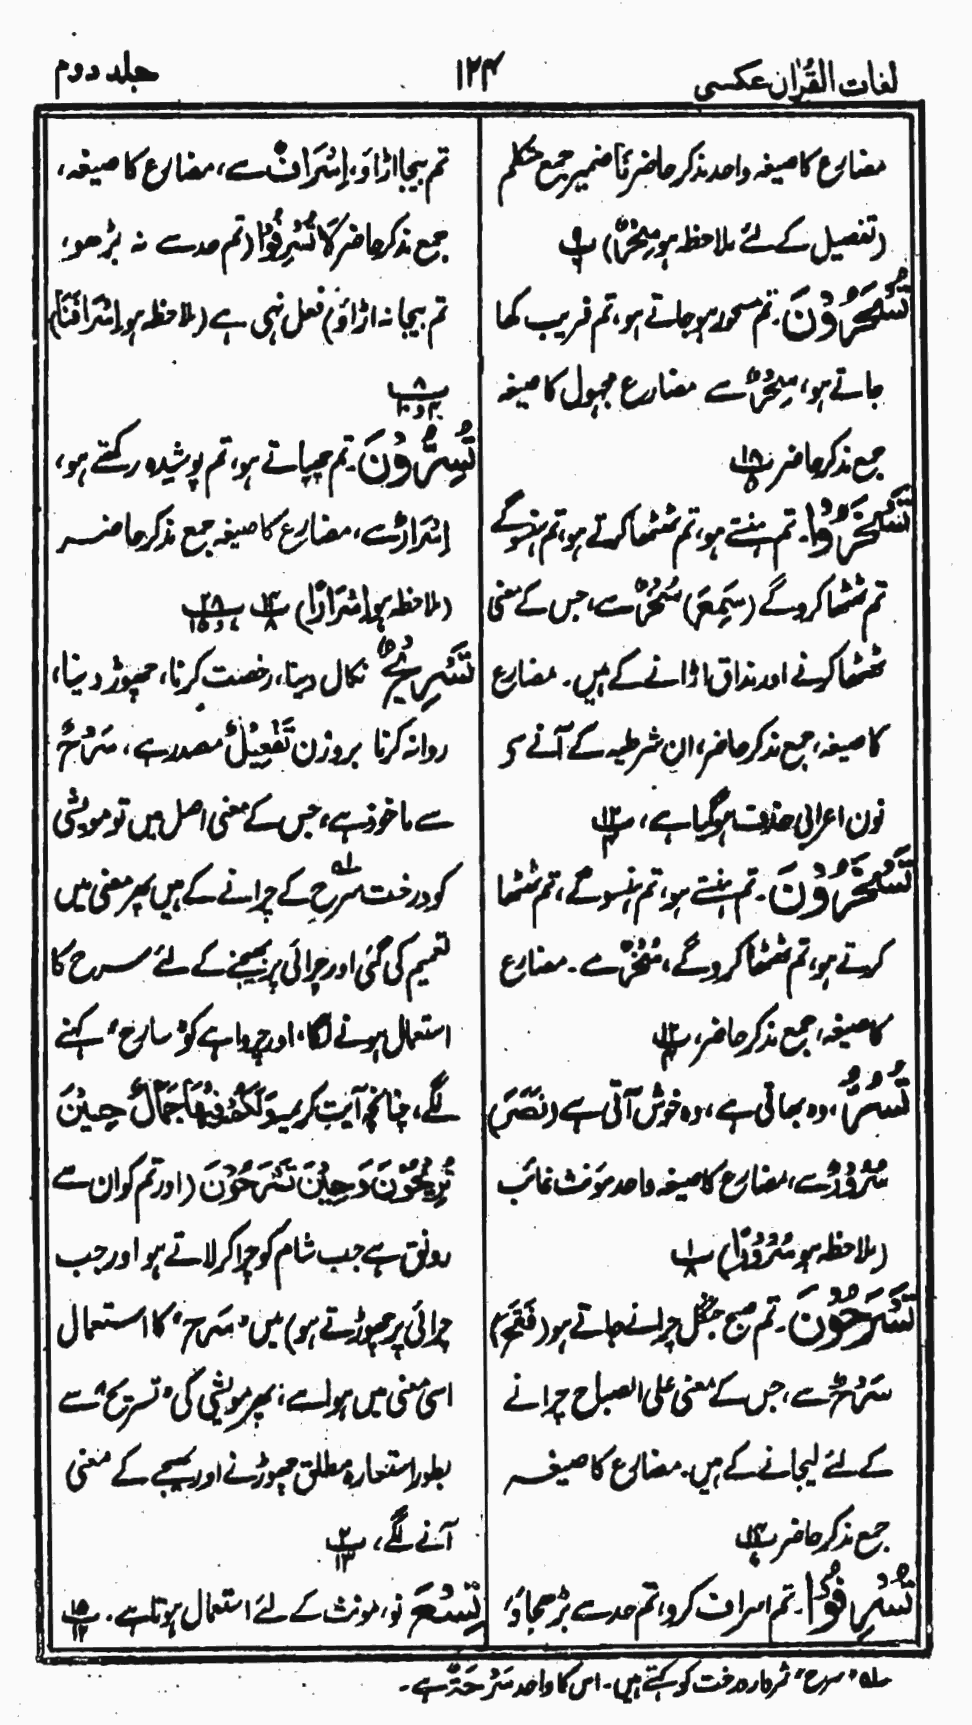 لغات القرآن عکسی
۱۲۴
جلد دوم
مضارع کا صیغہ واحد مذکر حاضر نَا ضمیر جمع متکلم
(تفصیل کے لئے ملاحظہ ہو سِحْرٌ) پ ۹
تُسْحَرُوْنَ۔ تم مسحور ہو جاتے ہو، تم فریب کھا
جاتے ہو، سِحْرٌ سے مضارع مجہول کا صیغہ
جمع مذکر حاضر پ ۱۸ ۵
تَسْخَرُوْا۔ تم ہنستے ہو، تم ٹھٹھا کرتے ہو، تم ہنسو گے
تم ٹھٹھا کرو گے (سَمِعَ) سُخْرٌ سے، جس کے معنی
ٹھٹھا کرنے اور مذاق اڑانے کے ہیں۔ مضارع
کا صیغہ، جمع مذکر حاضر، ان شرطیہ کے آنے سے
نون اعرابی حذف ہو گیا ہے، پ ۱۲ ۴
تَسْخَرُوْنَ۔ تم ہنستے ہو، تم ہنسو گے، تم ٹھٹھا
کرتے ہو، تم ٹھٹھا کرو گے، سُخْرٌ سے۔ مضارع
کا صیغہ، جمع مذکر حاضر، پ ۱۲ ۴
تَسُرُّ، وہ بھاتی ہے، وہ خوش آتی ہے (نَصَرَ)
سُرُوْرٌ سے، مضارع کا صیغہ واحد مؤنث غائب
(ملاحظہ ہو سُرُوْرًا) پ ۱ ۸
تَسْرَحُوْنَ۔ تم صبح جنگل چرانے جاتے ہو (فَتَحَ)
سَرْحٌ سے، جس کے معنی علی الصباح چرانے
کے لئے لیجانے کے ہیں۔ مضارع کا صیغہ
جمع مذکر حاضر پ ۱۴ ۷
تُسْرِفُوْا۔ تم اسراف کرو، تم حد سے بڑھ جاؤ،
تم بیجا اڑاؤ، اِسْرَافٌ سے، مضارع کا صیغہ،
جمع مذکر حاضر لَا تُسْرِفُوْا (تم حد سے نہ بڑھو،
تم بیجا نہ اڑاؤ) فعل نہی ہے (ملاحظہ ہو اِسْرَافَنَا)
پ ۸
تُسِرُّوْنَ۔ تم چھپاتے ہو، تم پوشیدہ رکھتے ہو،
اِسْرَارٌ سے، مضارع کا صیغہ جمع مذکر حاضر
(ملاحظہ ہو اِسْرَارًا) پ ۱۴ ۸ پ ۲۸
تَسْرِیْحٌ نکال دینا، رخصت کرنا، چھوڑ دینا،
روانہ کرنا بروزن تَفْعِیْلٌ مصدر ہے، سَرْحٌ
سے ماخوذ ہے، جس کے معنی اصل میں تو مویشی
کو درخت سرح ۱؎ کے چرانے کے ہیں پھر معنی میں
تعمیم کی گئی اور چرائی پر بھیجنے کے لئے سرح کا
استعمال ہونے لگا، اور چرواہے کو "سارح" کہنے
لگے، چنانچہ آیت کریمہ وَلَكُمْ فِيْهَا جَمَالٌ حِيْنَ
تُرِيْحُوْنَ وَحِيْنَ تَسْرَحُوْنَ (اور تم کو ان سے
رونق ہے جب شام کو چرا کر لاتے ہو اور جب
چرائی پر چھوڑتے ہو) میں "سَرح" کا استعمال
اسی معنی میں ہوا ہے، پھر مویشی کی "تسریح" سے
بطور استعارہ مطلق چھوڑنے اور بھیجنے کے معنی
آنے لگے، پ ۲ ۱۳
تِسْعَ نو، مؤنث کے لئے استعمال ہوتا ہے۔ پ ۱۵ ۱۲
۱؎ "سرح" ثمردار درخت کو کہتے ہیں۔ اس کا واحد سَرْحَۃٌ ہے۔